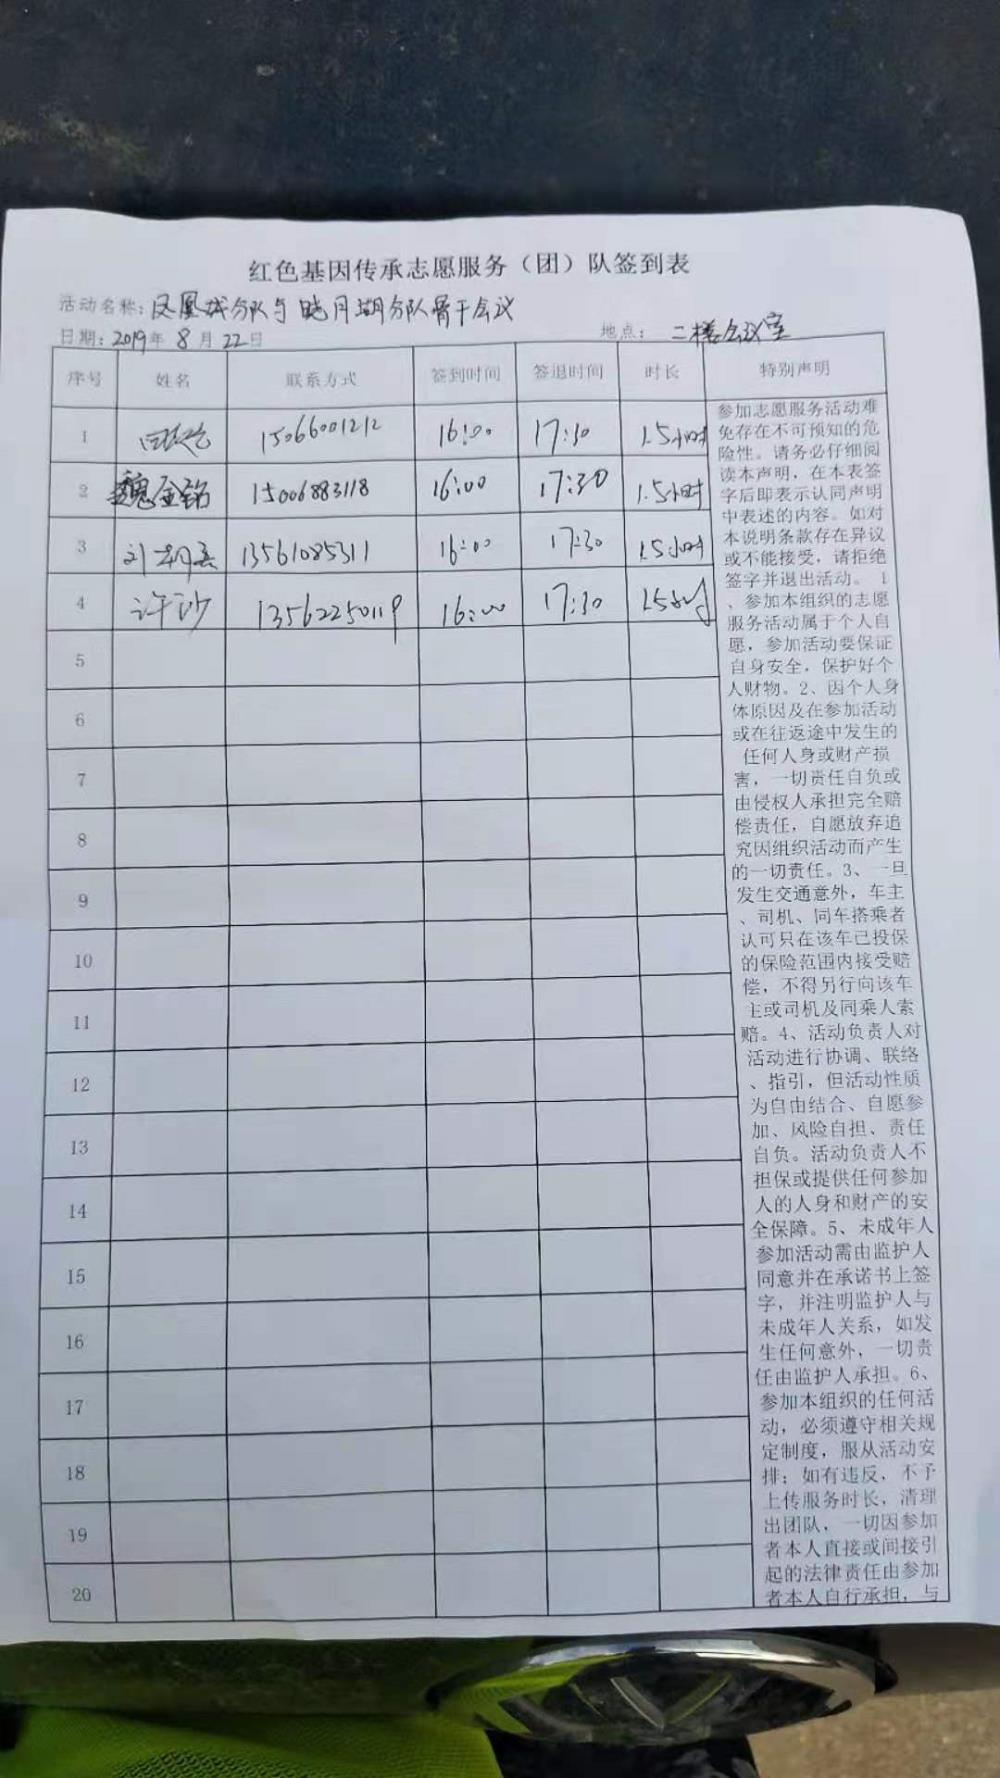 红色基因传承志愿服务（团）队签到表
活动名称：凤凰城分队与晓月湖分队骨干会议
日期：2019年 8 月 22日 地点： 二楼会议室
序号 姓名 联系方式 签到时间 签退时间 时长 特别声明
1 15066001212 16:00 17:30 1.5小时
2 魏金铭 15006883118 16:00 17:30 1.5小时
3 13561085311 16:00 17:30 1.5小时
4 许沙 13562250119 16:00 17:30 1.5小时
5
6
7
8
9
10
11
12
13
14
15
16
17
18
19
20
参加志愿服务活动难
免存在不可预知的危
险性。请务必仔细阅
读本声明，在本表签
字后即表示认同声明
中表述的内容。如对
本说明条款存在异议
或不能接受，请拒绝
签字并退出活动。 1
、参加本组织的志愿
服务活动属于个人自
愿，参加活动要保证
自身安全，保护好个
人财物。2、因个人身
体原因及在参加活动
或在往返途中发生的
任何人身或财产损
害，一切责任自负或
由侵权人承担完全赔
偿责任，自愿放弃追
究因组织活动而产生
的一切责任。3、一旦
发生交通意外，车主
、司机、同车搭乘者
认可只在该车已投保
的保险范围内接受赔
偿，不得另行向该车
主或司机及同乘人索
赔。4、活动负责人对
活动进行协调、联络
、指引，但活动性质
为自由结合、自愿参
加、风险自担、责任
自负。活动负责人不
担保或提供任何参加
人的人身和财产的安
全保障。5、未成年人
参加活动需由监护人
同意并在承诺书上签
字，并注明监护人与
未成年人关系，如发
生任何意外，一切责
任由监护人承担。6、
参加本组织的任何活
动，必须遵守相关规
定制度，服从活动安
排；如有违反，不予
上传服务时长，清理
出团队，一切因参加
者本人直接或间接引
起的法律责任由参加
者本人自行承担，与